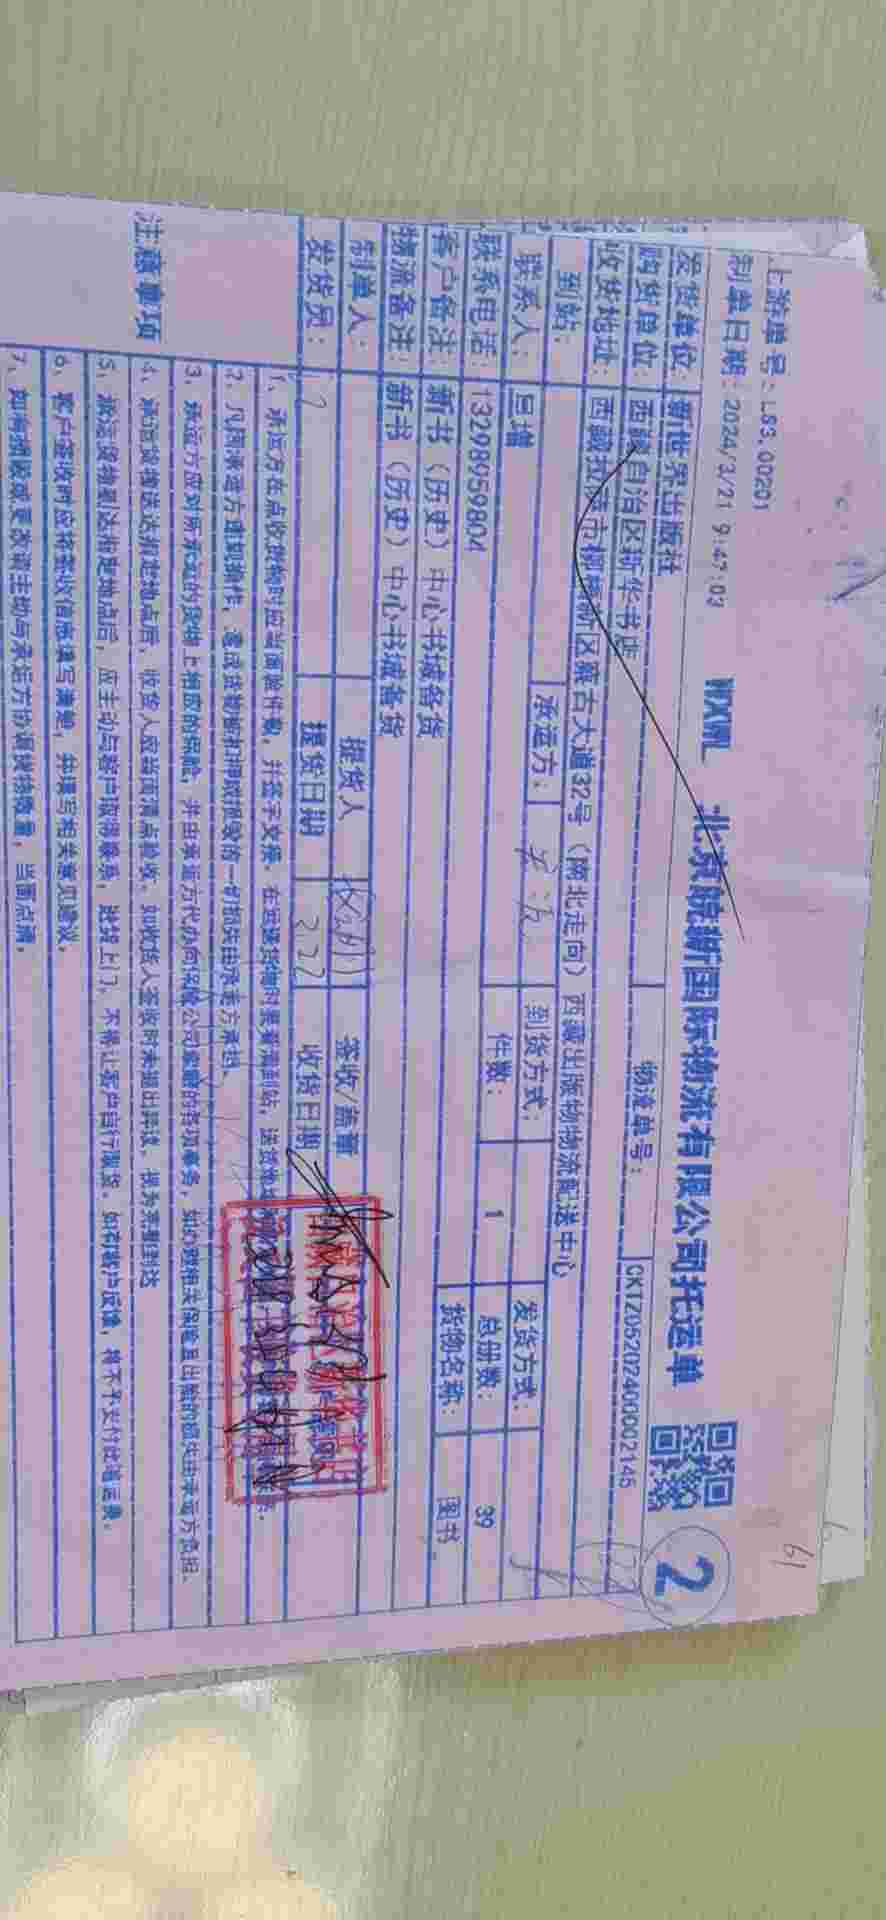 上游单号：LS3.00201
制单日期：2024/3/21 9:47:03
WXWL 北京皖新国际物流有限公司托运单
2
61
发货单位：新世界出版社
购货单位 西藏自治区新华书店 物流单号： CKTZ0520240002145
收货地址：西藏拉萨市柳梧新区察古大道32号（南北走向）西藏出版物物流配送中心
到站： 承运方： 到货方式： 发货方式：
联系人： 旦增 件数： 1 总册数： 39
联系电话：13298959804 货物名称： 图书
客户备注：新书（历史）中心书城备货
物流备注：新书（历史）中心书城备货
制单人： 提货人 签收/盖章
发货员： 提货日期 收货日期
注意事项
1、承运方在点收货物时应当面验件数，并签字交接。在运送货物时要看清到站、送货地
2、凡因承运方违规操作，造成货物被扣押或损毁的一切损失由承运方承担。
3、承运方应对所承运的货物上相应的保险，并由承运方代办向保险公司索赔的各项事务，如办理相关保险且出险的损失由承运方负担。
4、承运货物送达指定地点后，收货人应当面清点验收。如收货人签收时未提出异议，视为完整到达
5、承运货物到达指定地点后，应主动与客户取得联系，送货上门，不得让客户自行取货。如有客户反馈，将不予支付此笔运费。
6、客户签收时应将签收信息填写清楚，并填写相关意见建议。
7、如有损毁或更改请主动与承运方协调货物数量，当面点清。